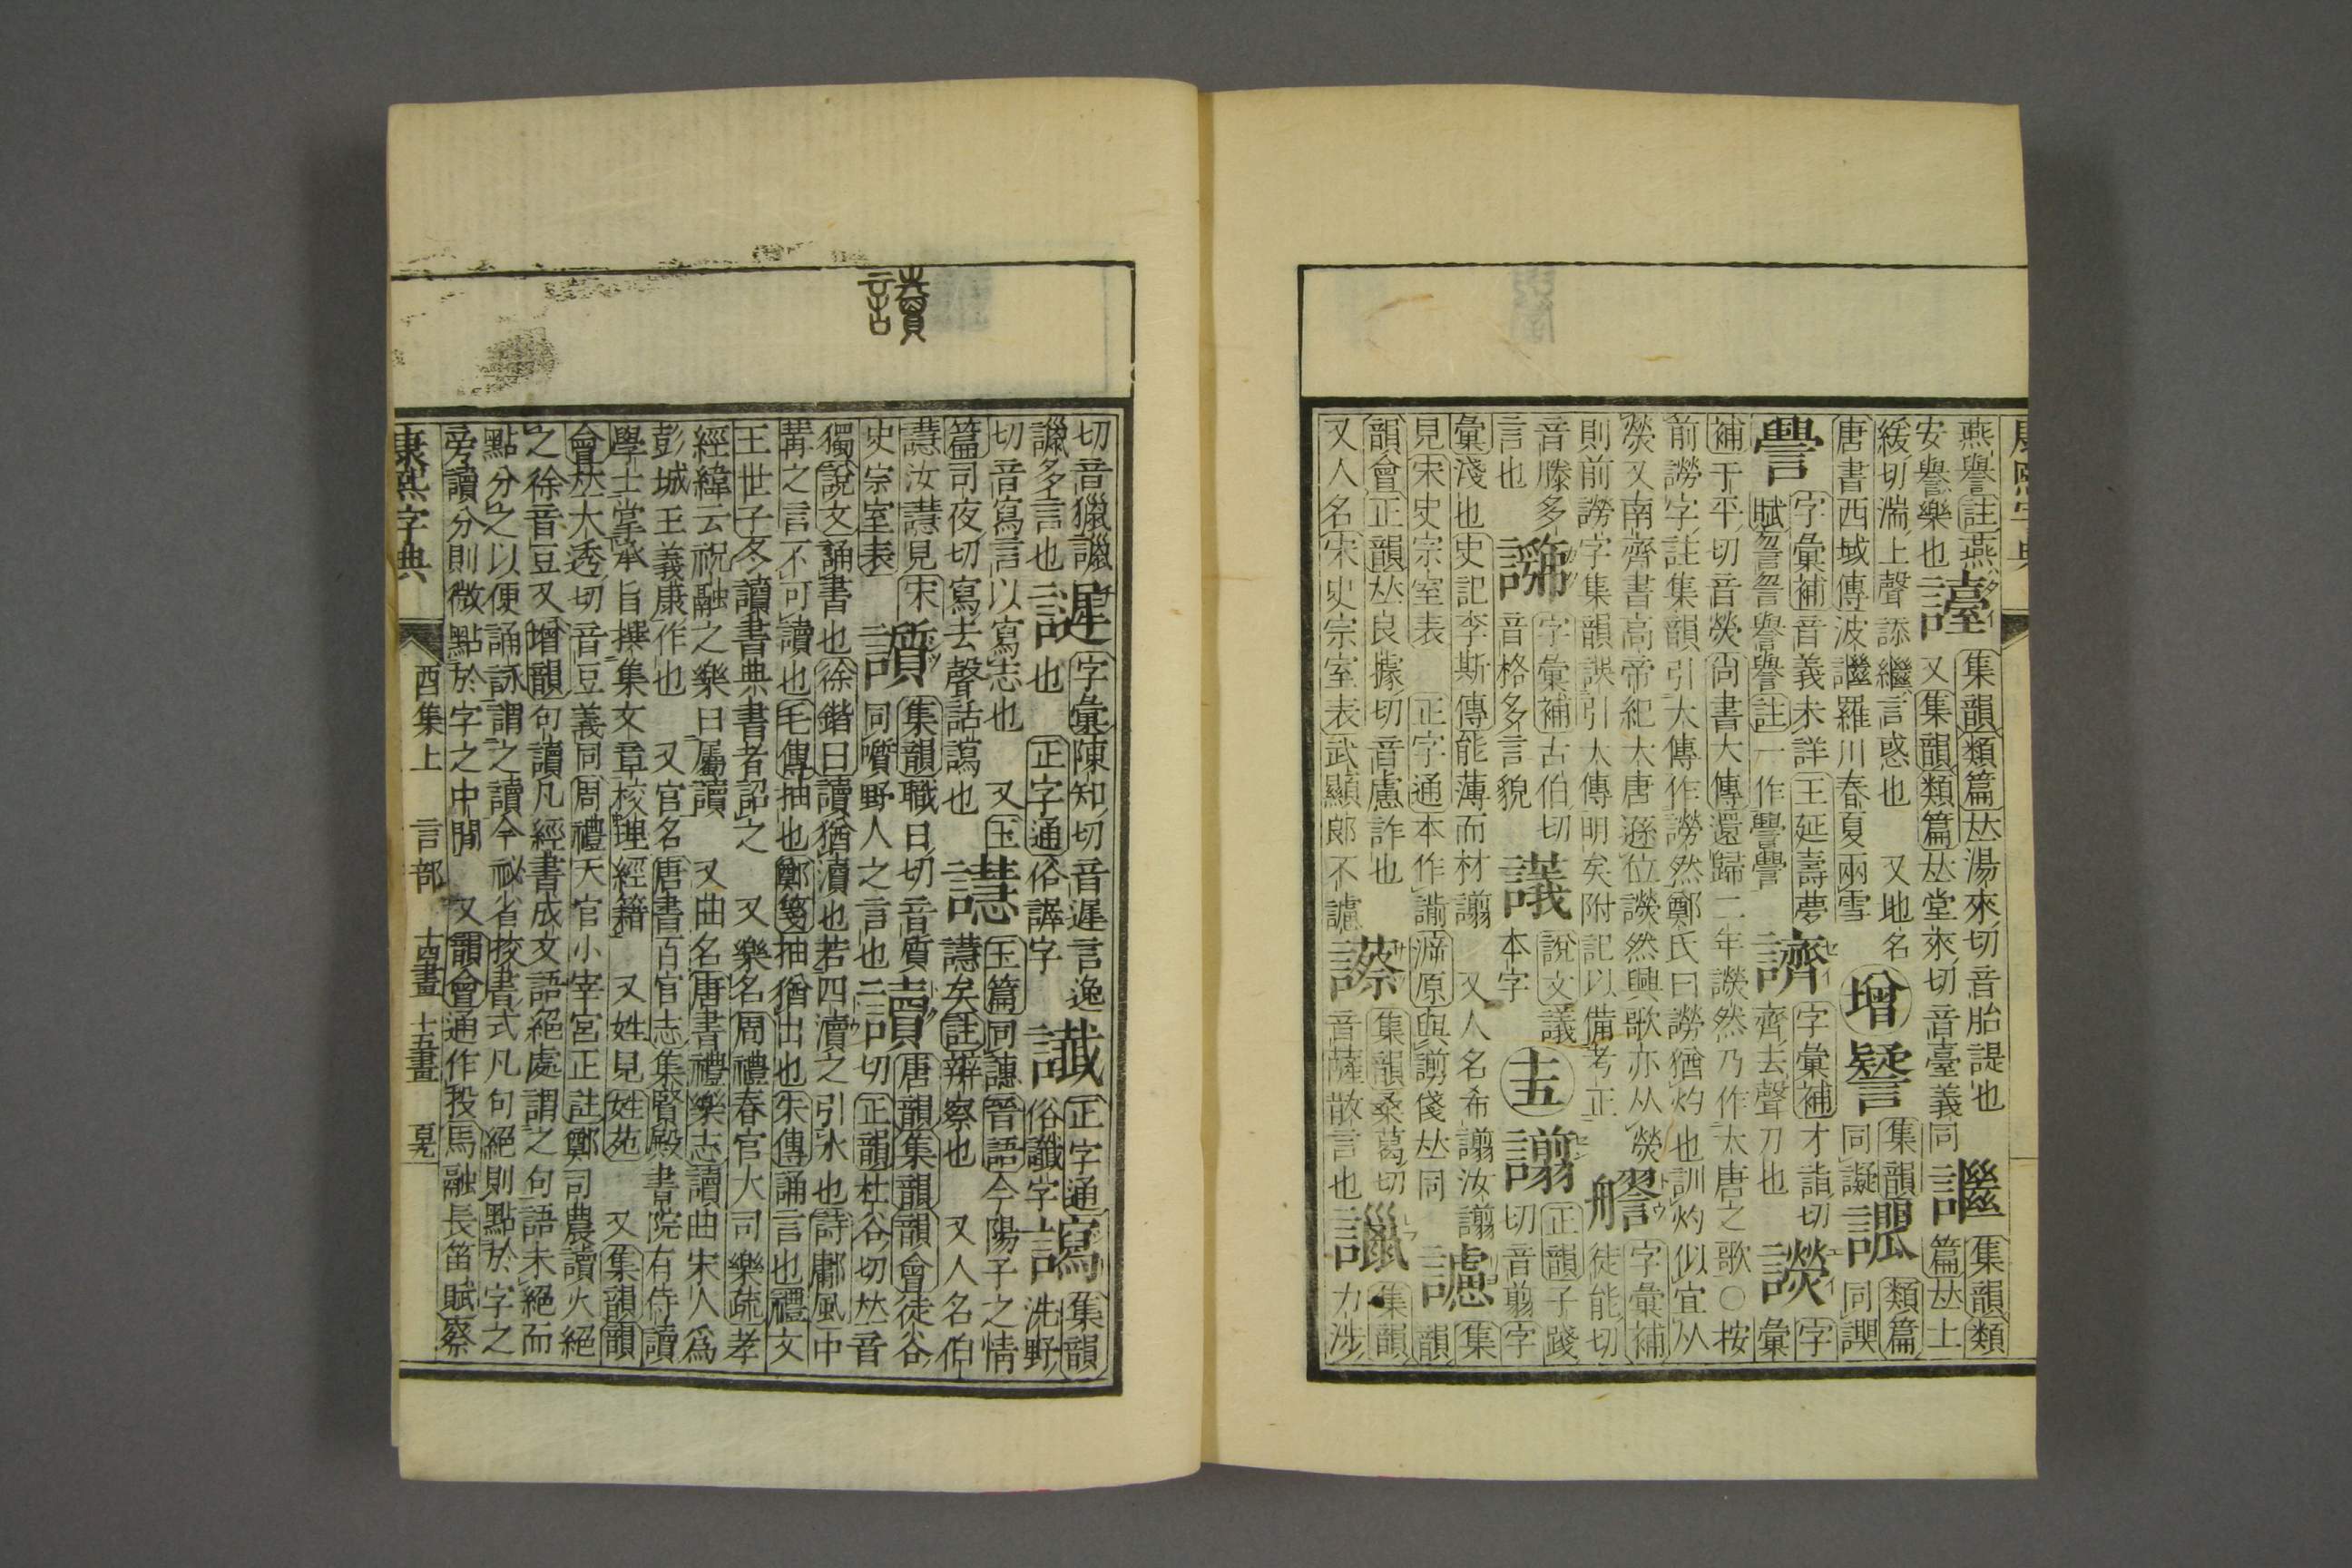 燕譽註燕 集韻類篇𠀤湯來切音胎諟也 集韻類
安譽樂也 又集韻類篇𠀤堂來切音臺義同 篇𠀤上
緩切湍上聲 言惑也 又地名 增 集韻 類篇
唐書西域傳波 羅川春夏雨雪 同譺 同諟
字彙補音義未詳王延壽夢 字彙補才詣切 字
賦 註一作 齊去聲刀也 彙
補于平切音熒尚書大傳還歸二年 然乃作大唐之歌〇按
前 字註集韻引大傳作 然鄭氏曰 猶灼也訓灼似宜从
熒又南齊書高帝紀大唐遜位 然興歌亦从熒 字彙補
則前 字集韻誤引大傳明矣附記以備考正 徒能切
音滕多 字彙補古伯切 議 說文議 十五 正韻子踐
言也 音格多言貌 本字 切音翦字
彙淺也史記李斯傳能薄而材譾 又人名希譾汝譾 集
見宋史宗室表 正字通本作 原與謭俴𠀤同 韻
韻會正韻𠀤良據切音慮詐也 集韻桑葛切 集韻
又人名宋史宗室表武顯郎不 音薩散言也 力涉
讀
切音獵 字彙陳知切音遲言逸 正字通 集韻
多言也 也 正字通俗謘字 俗讖字 洗野
切音寫言以寫志也 又玉 玉篇同譓晉語今陽子之情
篇司夜切寫去聲詁 也 譿 譿矣註辨察也 又人名伯
譿汝譿見宋 集韻職日切音質 讀 唐韻集韻韻會徒谷
史宗室表 同嚍野人之言也 切正韻杜谷切𠀤音
獨說文誦書也徐鍇曰讀猶瀆也若四瀆之引水也詩鄘風中
冓之言不可讀也毛傳抽也鄭箋抽猶出也朱傳誦言也禮文
王世子冬讀書典書者詔之 又樂名周禮春官大司樂疏孝
經緯云祝融之樂曰屬讀 又曲名唐書禮樂志讀曲宋人爲
彭城王義康作也 又官名唐書百官志集賢殿書院有侍讀
學士掌承旨撰集文章校理經籍 又姓見姓苑 又集韻韻
會𠀤大透切音豆義同周禮天官小宰宮正註鄭司農讀火絕
之徐音豆又增韻句讀凡經書成文語絕處謂之句語未絕而
點分之以便誦詠謂之讀今祕省挍書式凡句絕則點於字之
旁讀分則微點於字之中閒 又韻會通作投馬融長笛賦察
康熙字典 酉集上 言部 十四畫 十五畫